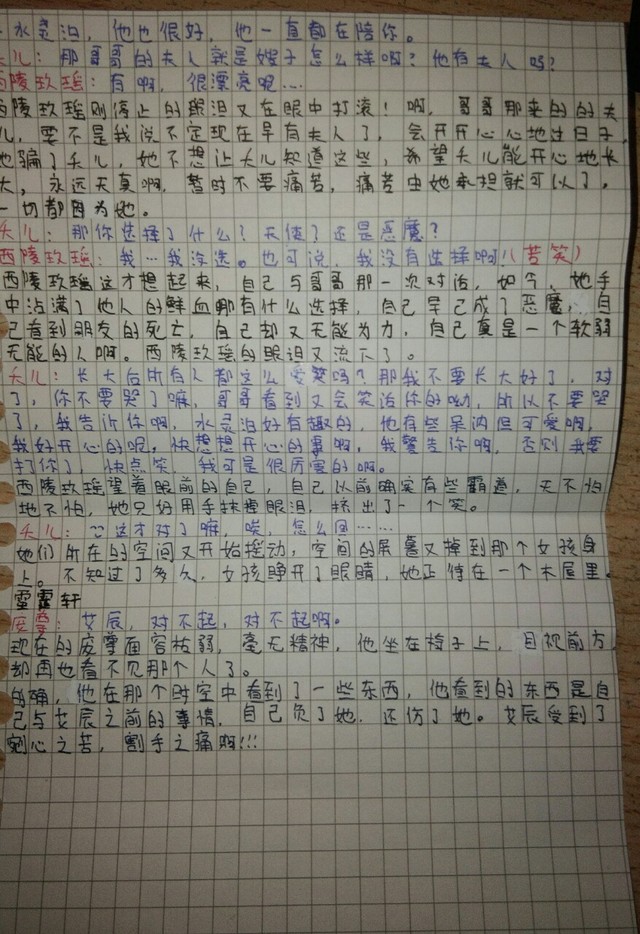 水灵泊，他也很好，他一直都在陪你。
夭儿：那哥哥的夫人就是嫂子怎么样啊？他有夫人吗？
西陵玖瑶：有啊，很漂亮呢…
西陵玖瑶刚停止的眼泪又在眼中打滚！啊，哥哥那来的的夫
儿，要不是我说不定现在早有夫人了，会开开心心地过日子，
她骗了夭儿，她不想让夭儿知道这些，希望夭儿能开心地长
大，永远天真啊，暂时不要痛苦，痛苦由她承担就可以了。
一切都因为她。
夭儿：那你选择了什么？天使？还是恶魔？
西陵玖瑶：我…我没选。也可说，我没有选择啊！（苦笑）
西陵玖瑶这才想起来，自己与哥哥那一次对话，如今，她手
中沾满了他人的鲜血哪有什么选择，自己早已成了恶魔，自
己看到朋友的死亡，自己却又无能为力，自己真是一个软弱
无能的人啊。西陵玖瑶的眼泪又流下了。
夭儿：长大后所有人都这么爱哭吗？那我不要长大好了，对
了，你不要哭了嘛，哥哥看到又会笑话你的呦，所以不要哭
了，我告诉你啊，水灵泊好有趣的，他有些呆讷但可爱啊，
我好开心的呢，快想想开心的事啊，我警告你啊，否则我要
打你了，快点笑，我可是很厉害的啊。
西陵玖瑶望着眼前的自己，自己以前确实有些霸道，天不怕
地不怕，她只份用手抹掉眼泪，挤出了一个笑。
夭儿：这才对了嘛，唉，怎么回……
她们所在的空间又开始摇动，空间的屏幕又掉到那个女孩身
上。不知过了多久，女孩睁开了眼睛，她正待在一个木屋里。
霆霄轩
废尊：艾辰，对不起，对不起啊。
现在的废尊面容枯弱，毫无精神，他坐在椅子上，目视前方
却再也看不见那个人了。
的确，他在那个时空中看到了一些东西，他看到的东西是自
己与艾辰之前的事情，自己负了她，还伤了她。艾辰受到了
剜心之苦，割手之痛啊!!!